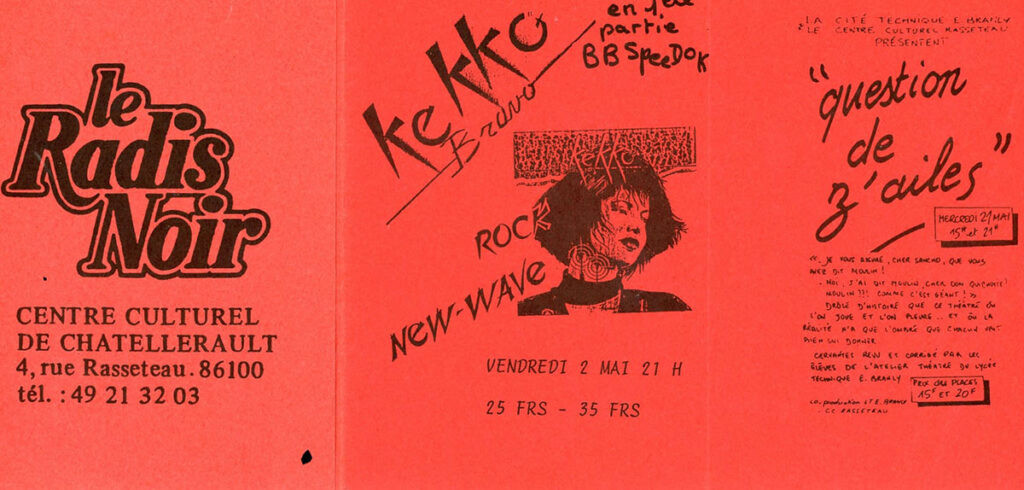 le
Radis
Noir
CENTRE CULTUREL
DE CHATELLERAULT
4, rue Rasseteau . 86100
tél. : 49 21 32 03
en 1ère
partie
BB SpeeDOK
KeKKo
Bravo
KeKKo
ROCK
NeW-WAVe
VENDREDI 2 MAI 21 H
25 FRS - 35 FRS
LA CITÉ TECHNIQUE E. BRANLY
& LE CENTRE CULTUREL RASSETEAU
PRÉSENTENT
"question
de
z'ailes"
MERCREDI 21 MAI
15H et 21H
«. JE VOUS ASSURE, CHER SANCHO, QUE VOUS
AVEZ DIT MOULIN !
- MOI, J'AI DIT MOULIN, CHER DON QUICHOTE !
MOULIN ??! COMME C'EST GÉANT ! »
DRÔLE D'HISTOIRE QUE CE THÉÂTRE OÙ
L'ON JOUE ET L'ON PLEURE .. ET OÙ LA
RÉALITÉ N'A QUE L'OMBRE QUE CHACUN VEUT
BIEN LUI DONNER
CERVANTES REVU ET CORRIGÉ PAR LES
ÉLÈVES DE L'ATELIER THÉATRE DU LYCÉE
TECHNIQUE E. BRANLY
PRIX DES PLACES
15F ET 20F
co-production LT E. BRANLY
- CC RASSETEAU